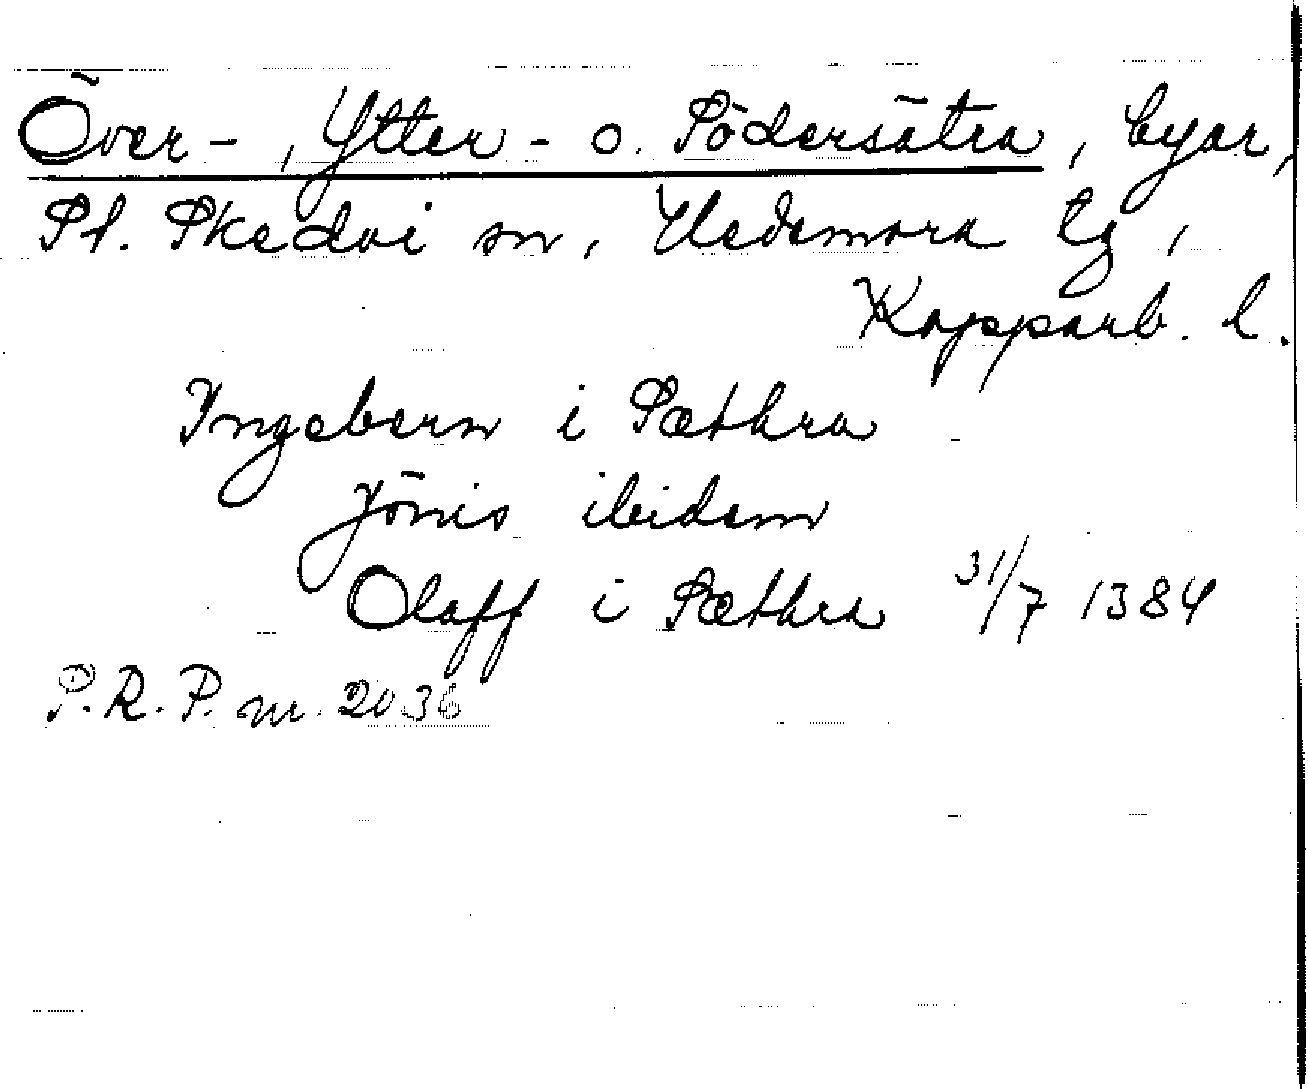 Över-, Ytter- o. Södersätra, byar,
St. Skedvi sn, Hedemora tg,
Kopparb. l.
Ingeborn i Sæthra
Jönis ibidem
Olaff i Sæthra 31/7 1384
S.R.P. nr. 2036